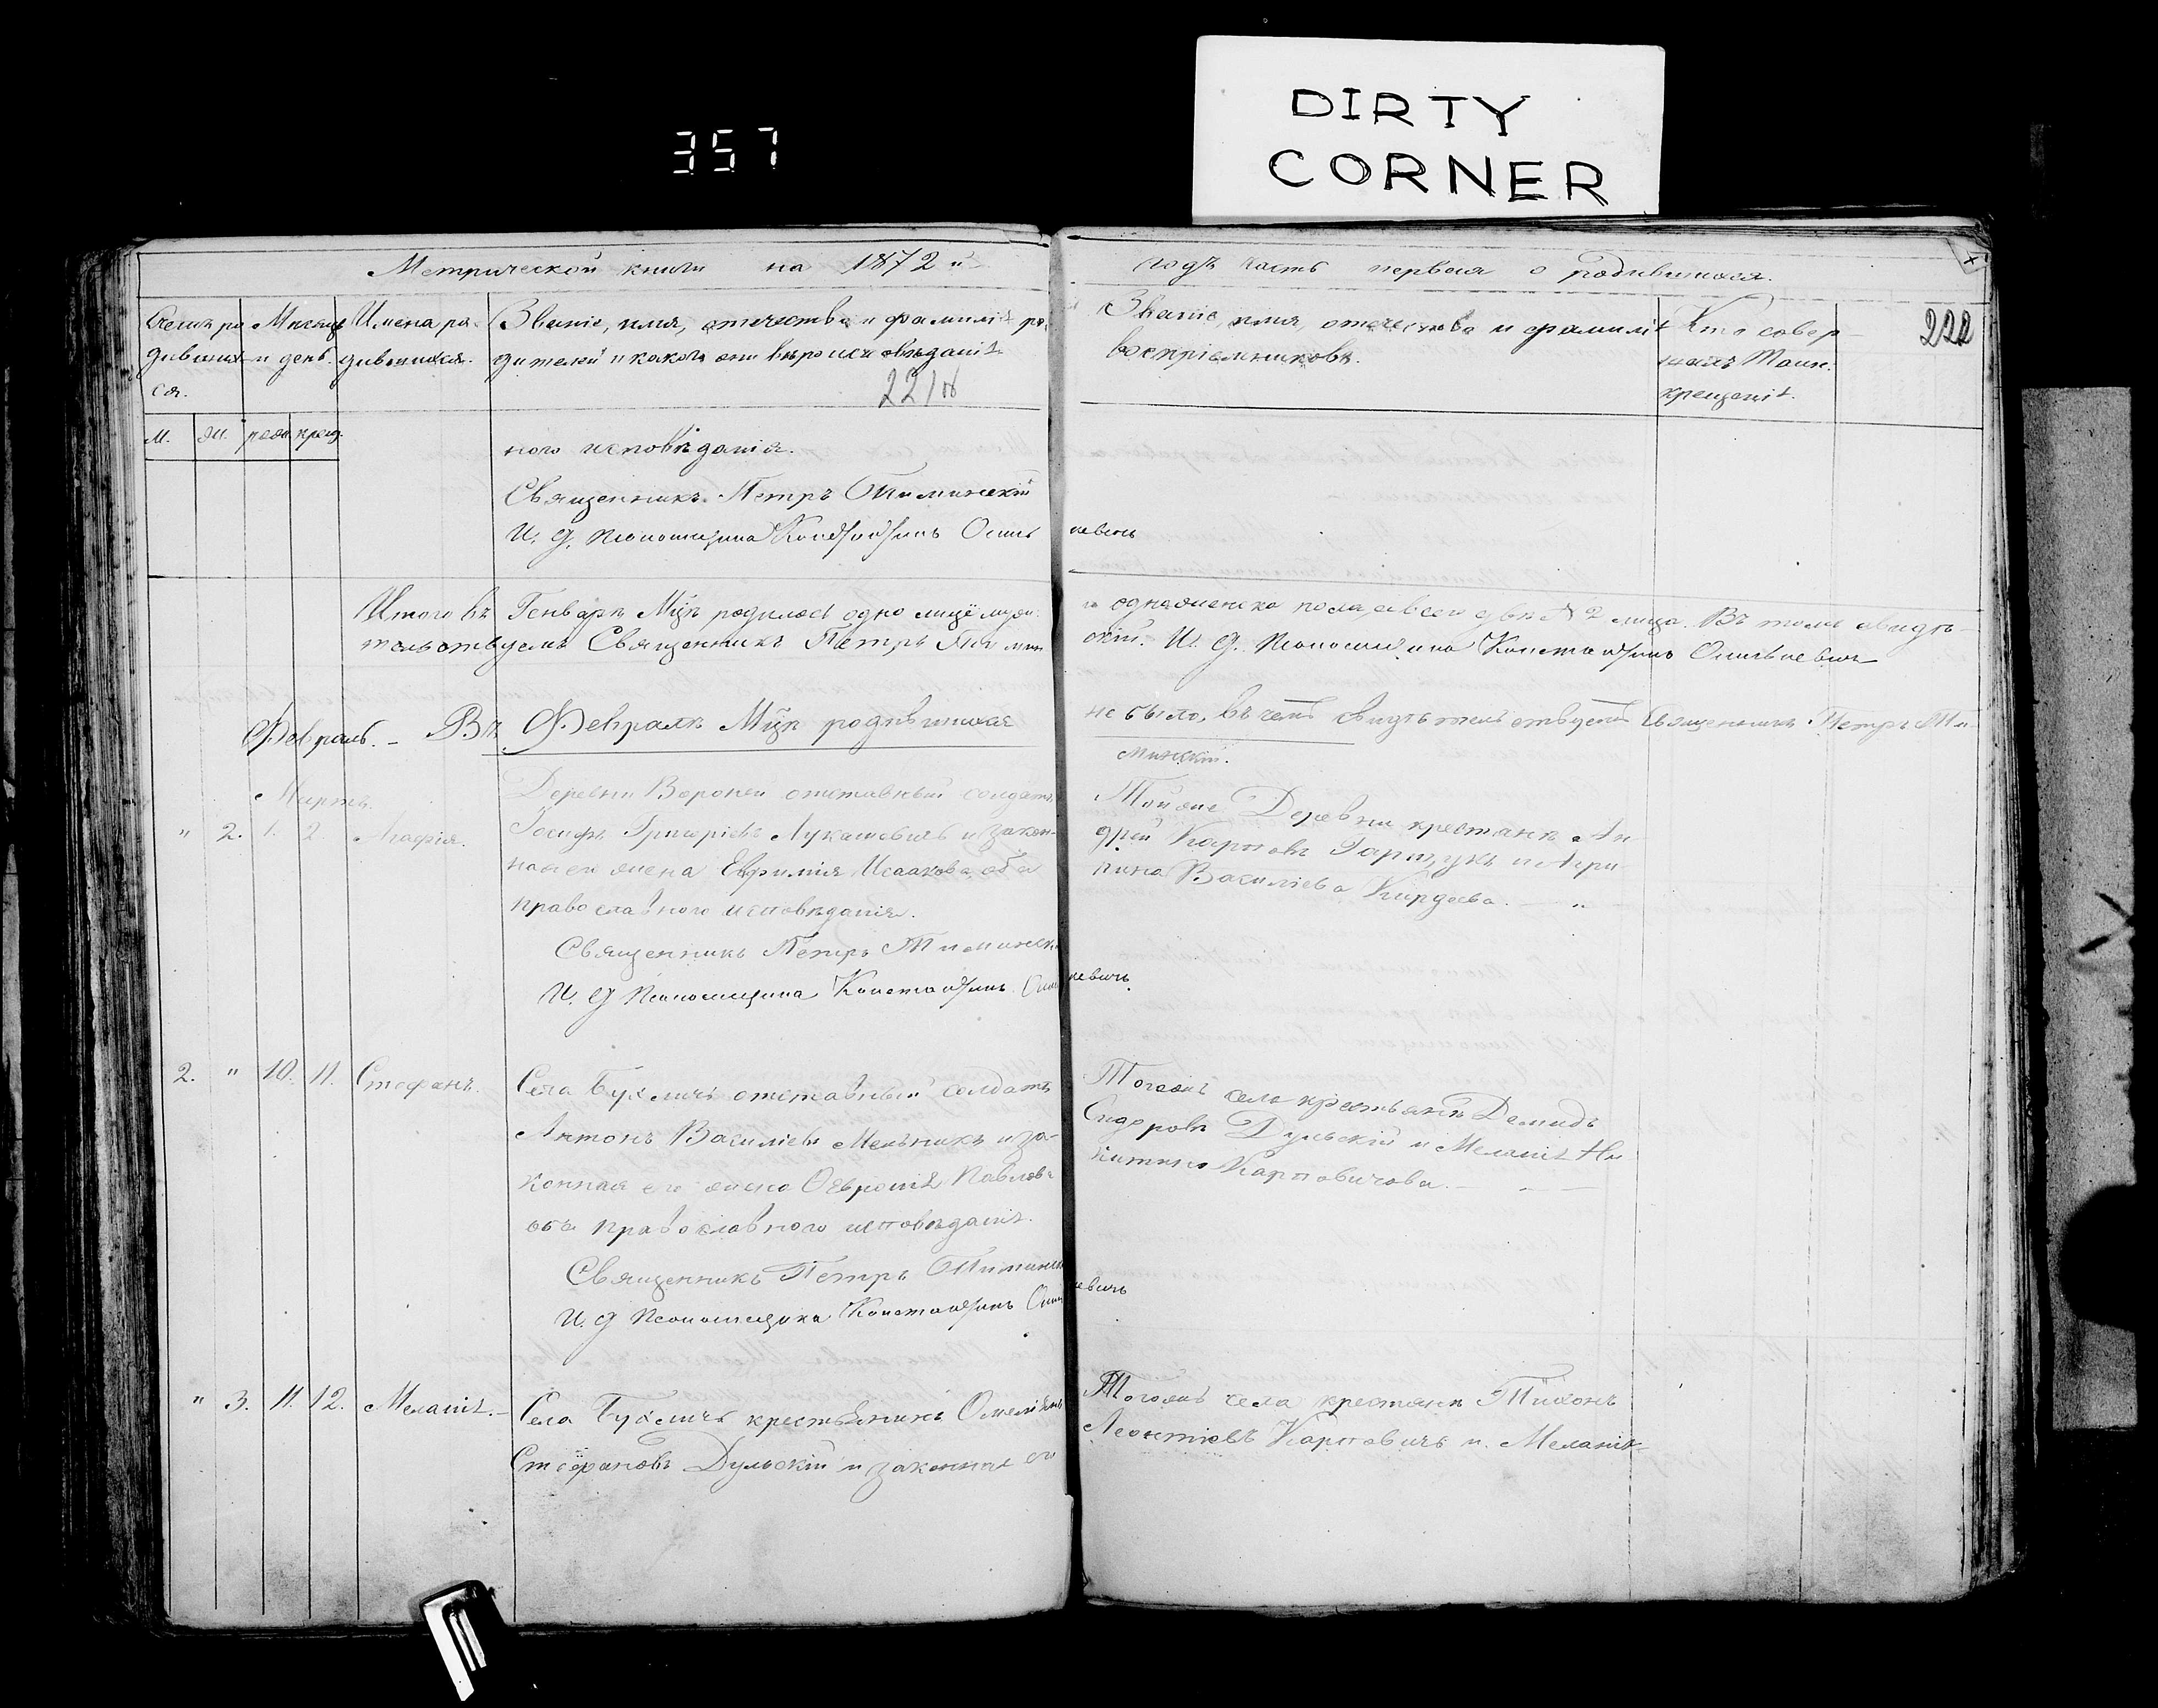 DIRTY
CORNER
357
Метрической книги на 1872й
годъ часть первая о родившихся.
222
Месяцъ и день.
Имена родившихся.
Званіе, имя, отечество и фамилія ро-
дителей и какого они вѣроисповѣданія
Званіе, имя, отечество и фамилія
воспріемниковъ.
Кто совер-
шалъ Таин.
крещенія.
М. ж. рожд. крещ.
ного исповѣданія.
Священникъ Петръ Тиминскій
И. д. Псаломщика Константинъ
Итого въ Генварѣ Мцѣ родилось одно лице муж.
и одна женска пола, а всего двѣ № 2 лица. Въ томъ свидѣ-
тельствуемъ Священникъ Петръ Тимин
скій. И. д. Псаломщика Константинъ
Февраль. - Въ Февралѣ Мцѣ родившихся
не было, въ чемъ свидѣтельствуетъ Священникъ Петръ Ти-
минскій.
Мартъ.
" 2. 1. 2. Агафія.
Деревни Вороней отставный солдатъ
Іосифъ Григоріевъ Лукашевичъ и закон-
ная его жена Евфимія Исаакова, оба
православного исповѣданія.
Священникъ Петръ Тиминск
И. д Псаломщика Константинъ
Той же Деревни крестьянъ Ан
дрей Карповъ и Агри-
пина Василіева Кирдеева. — "
2. " 10. 11. Стефанъ.
Села Бухличъ отставный солдатъ
Антонъ Василіевъ Мельникъ и за-
конная его жена Павлова
оба православного исповѣданія.
Священникъ Петръ Тиминск
И. д Псаломщика Константинъ
Тогожъ села крестьянъ Демидъ
Сидоровъ Дульскій и Меланія Ни
китина Карповичова. —
" 3. 11. 12. Меланія. —
Села Бухличъ крестьянинъ Омеліянъ
Стефановъ Дульскій и законная его
Тогожъ села крестьянъ Тихонъ
Леонтіевъ Карповичъ и Меланія